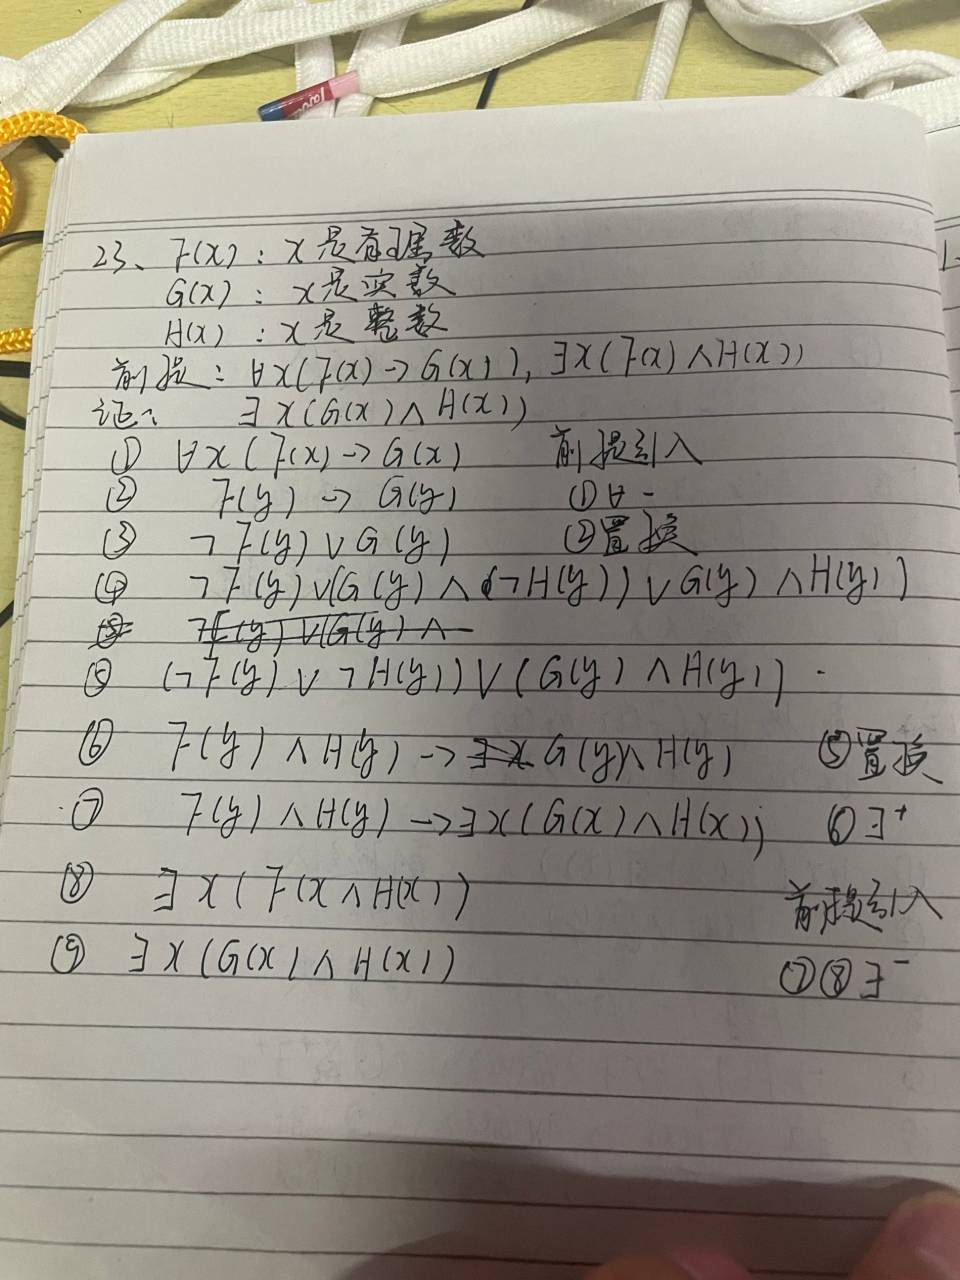 23、F(x)：x是有理数
G(x)：x是实数
H(x)：x是整数
前提：∀x(F(x)→G(x)), ∃x(F(x)∧H(x))
证：∃x(G(x)∧H(x))
① ∀x(F(x)→G(x) 前提引入
② F(y)→G(y) ①∀-
③ ¬F(y)∨G(y) ②置换
④ ¬F(y)∨(G(y)∧(¬H(y))∨G(y)∧H(y))
⑤ ¬F(y)∨(G(y)∧
⑤ (¬F(y)∨¬H(y))∨(G(y)∧H(y))
⑥ F(y)∧H(y)→∃x G(y)∧H(y) ⑤置换
⑦ F(y)∧H(y)→∃x(G(x)∧H(x)) ⑥∃⁺
⑧ ∃x(F(x∧H(x)) 前提引入
⑨ ∃x(G(x)∧H(x)) ⑦⑧∃⁻